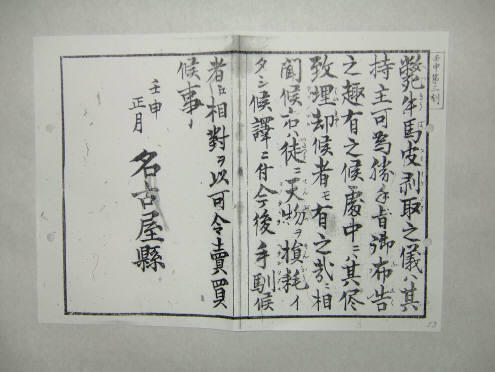 壬申第三刻
斃死牛馬皮剥取之儀ハ其
持主可為勝手旨御布告
之趣有之候處中ニハ其侭
致埋却候者モ有之哉ニ相
聞候右ハ徒ニ天物ヲ損耗イ
タシ候譯ニ付今後手馴候
者ニ相對ヲ以可令賣買
候事
壬申
正月
名古屋縣